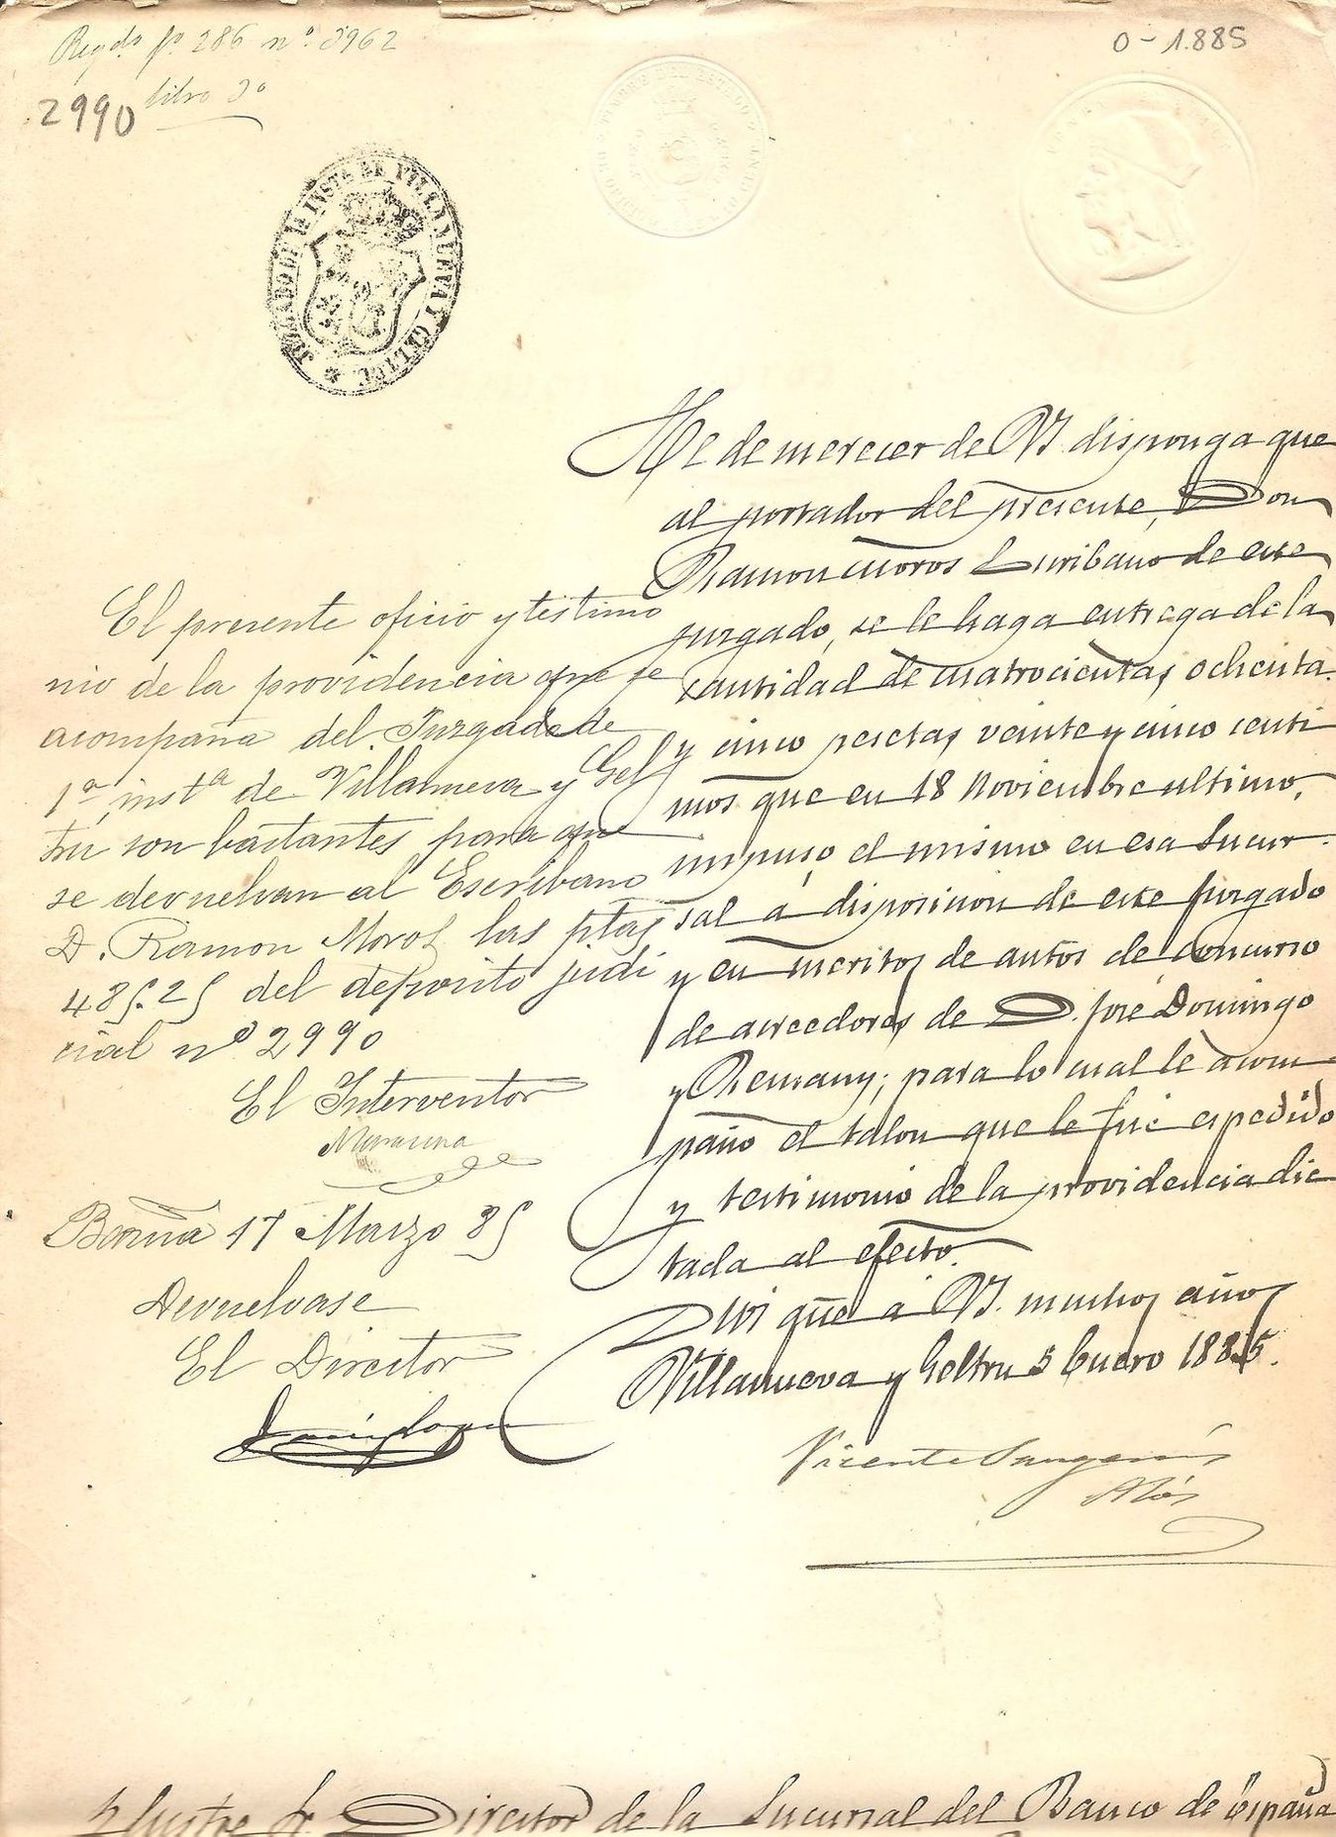 Regdo fo 286 no. 3962
libro 3o
2990
0-1.885
JUZGADO DE 1ª INSTª DE VILLANUEVA Y GELTRÚ
He de merecer de V.I. disponga que
al portador del presente, Don
Ramon Moros Escribano de este
juzgado, se le haga entrega de la
cantidad de cuatrocientas ochenta
y cinco pesetas veinte y cinco centi
mos que en 18 Noviembre ultimo,
impuso el mismo en esa Sucur-
sal á disposicion de este Juzgado
y en meritos de autos de concurso
de acreedores de D. José Domingo
y Remany; para lo cual le acom
paño el talon que le fué espedido
y testimonio de la providencia dic
tada al efecto.
Dios gue á V.I. muchos años
Villanueva y Geltru 5 Enero 1885.
Vicente Sangenís
Alós
El presente oficio y testimo
nio de la providencia que se
acompaña del Juzgado de
1ª instª de Villanueva y Gel
tru son bastantes para que
se devuelvan al Escribano
D. Ramon Moros las ptas
485.25 del deposito judi
cial nº 2990
El Interventor
Barna 17 Marzo 85
Devuelvase
El Director
Ilustre Sr. Director de la Sucursal del Banco de España